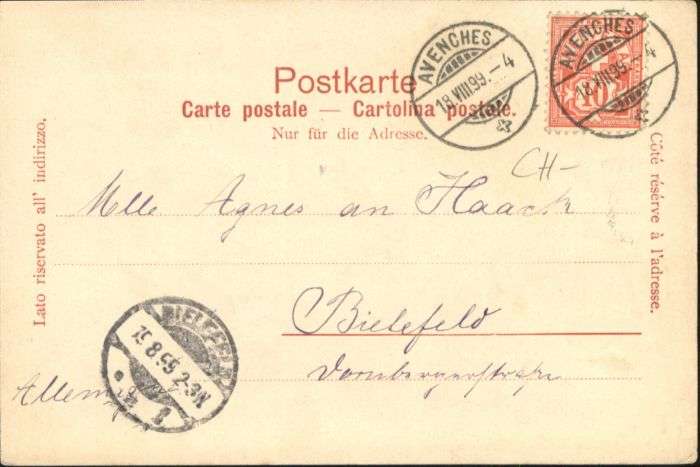 Postkarte
Carte postale — Cartolina postale.
Nur für die Adresse.
Lato riservato all' indirizzo.
Côté réservé à l'adresse.
AVENCHES
18.VIII.99.-4
AVENCHES
18.VIII.99.-4
10
CH-
Mlle Agnes an Haack
Bielefeld
Dornbergerstraße
BIELEFELD
19.8.99 2-3N